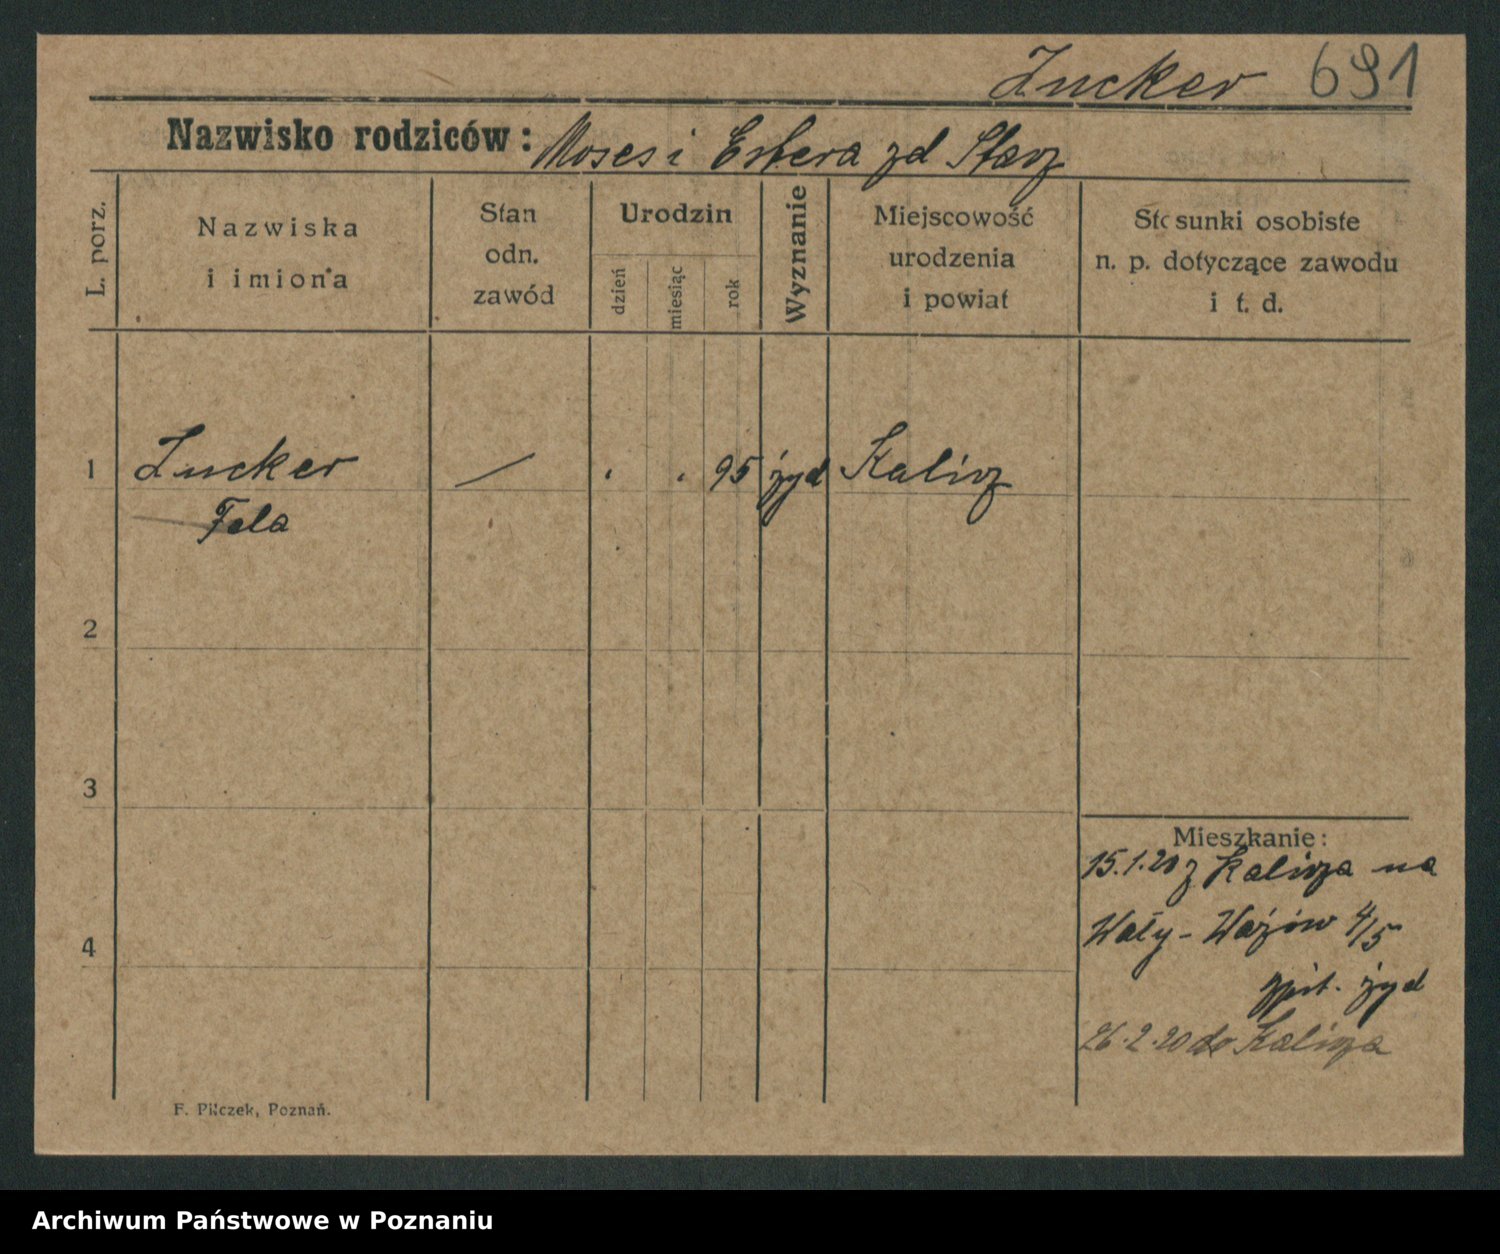 Zucker 691
Nazwisko rodziców: Moses i Estera zd Starz
L. porz.
Nazwiska
i imiona
Stan
odn.
zawód
Urodzin
dzień
miesiąc
rok
Wyznanie
Miejscowość
urodzenia
i powiat
Stosunki osobiste
n. p. dotyczące zawodu
i t. d.
1 Zucker — . . 95 żyd Kalisz
Fela
2
3
Mieszkanie:
15.1.20 z Kalisza na
4
Wały-Wazów 4/5
szpit. żyd
26.2.20 do Kalisza
F. Pilczek, Poznań.
Archiwum Państwowe w Poznaniu